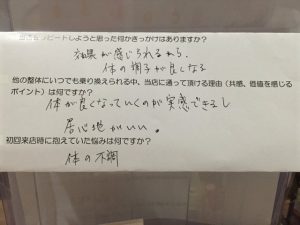 当店をリピートしようと思った何かきっかけはありますか?
効果が感じられるから、
体の調子が良くなる
他の整体にいつでも乗り換えられる中、当店に通って頂ける理由(共感、価値を感じる
ポイント)は何ですか?
体が良くなっていくのが実感できるし
居心地がいい。
初回来店時に抱えていた悩みは何ですか?
体の不調